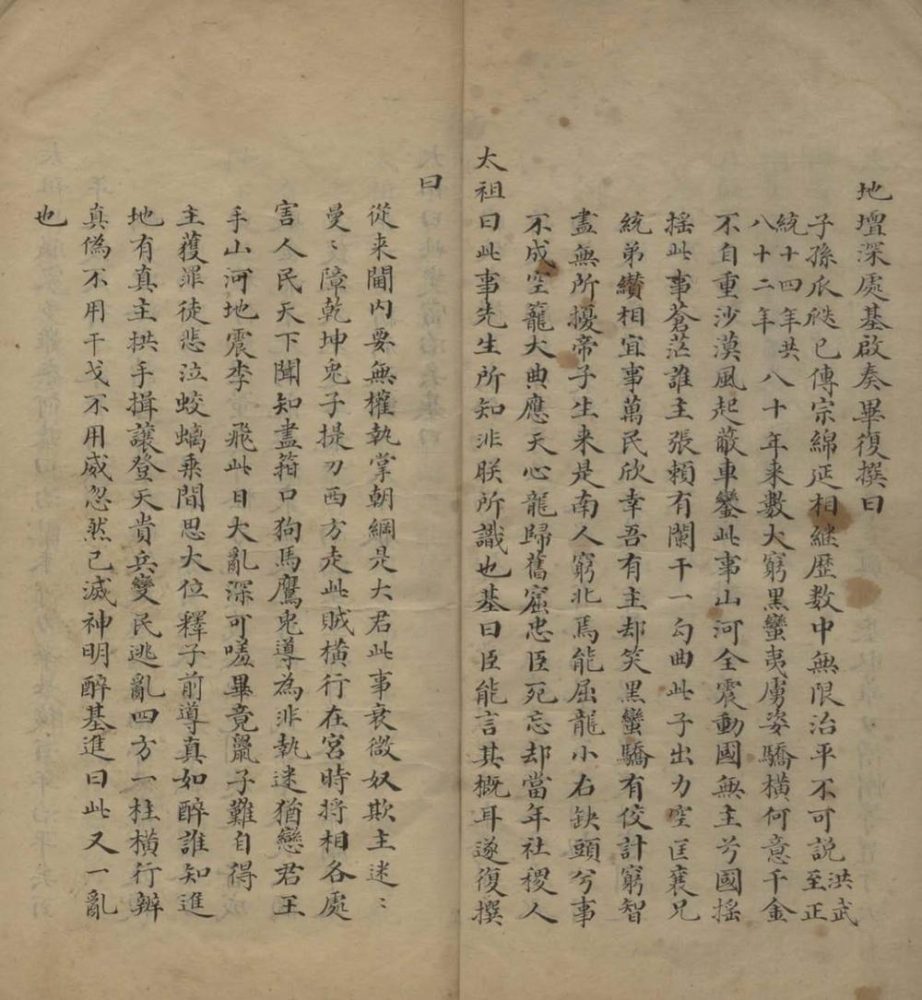 地壇深處基啟奏畢復撰曰
子孫瓜瓞已傳宗綿延相繼歷數中無限治平不可説洪武至正
統十四年共八十二年八十年来數大窮黑蠻夷虜姿驕橫何意千金
不自重沙漠風起蔽車鑾此事山河全震動國無主兮國搖
搖此事蒼茫誰主張賴有闌干一勾曲此子出力空匡襄兄
統弟纘相宜事萬民欣幸吾有主却笑黑蠻驕有佼計窮智
盡無所擾帝子生来是南人窮北焉能屈龍小右缺頭兮事
不成空籠大典應天心龍歸舊窟忠臣死忘却當年社稷人
太祖曰此事先生所知非朕所識也基曰臣能言其概耳遂復撰
曰
從来閫内要無權執掌朝綱是大君此事衰微奴欺主迷〻
曼〻障乾坤兔子提刀西方走此賊橫行在宮時將相各處
害人民天下聞知盡箝口狗馬鷹兔導為非執迷猶戀君王
手山河地震李飛此日大亂深可嗟畢竟鼠子難自得
主獲罪徒悲泣蛟螭乘間思大位釋子前導真如醉誰知進
地有真主拱手揖讓登天貴兵變民逃亂四方一柱橫行辨
真偽不用干戈不用威忽然已滅神明醉基進曰此又一亂
也